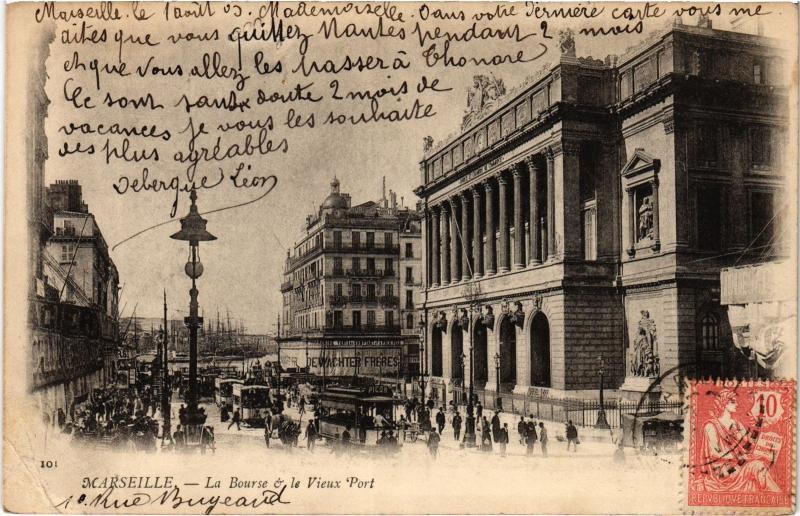 Marseille. le 1 août 03. Mademoiselle. Dans votre dernière carte vous me
dites que vous quittez Nantes pendant 2 mois
et que vous allez les passer à Thonare
Ce sont sans doute 2 mois de
vacances je vous les souhaite
des plus agréables
Deberque Léon
DEWACHTER FRÈRES
10
REPUBLIQUE FRANÇAISE
101
MARSEILLE. — La Bourse & le Vieux Port
10. Rue Bugeaud